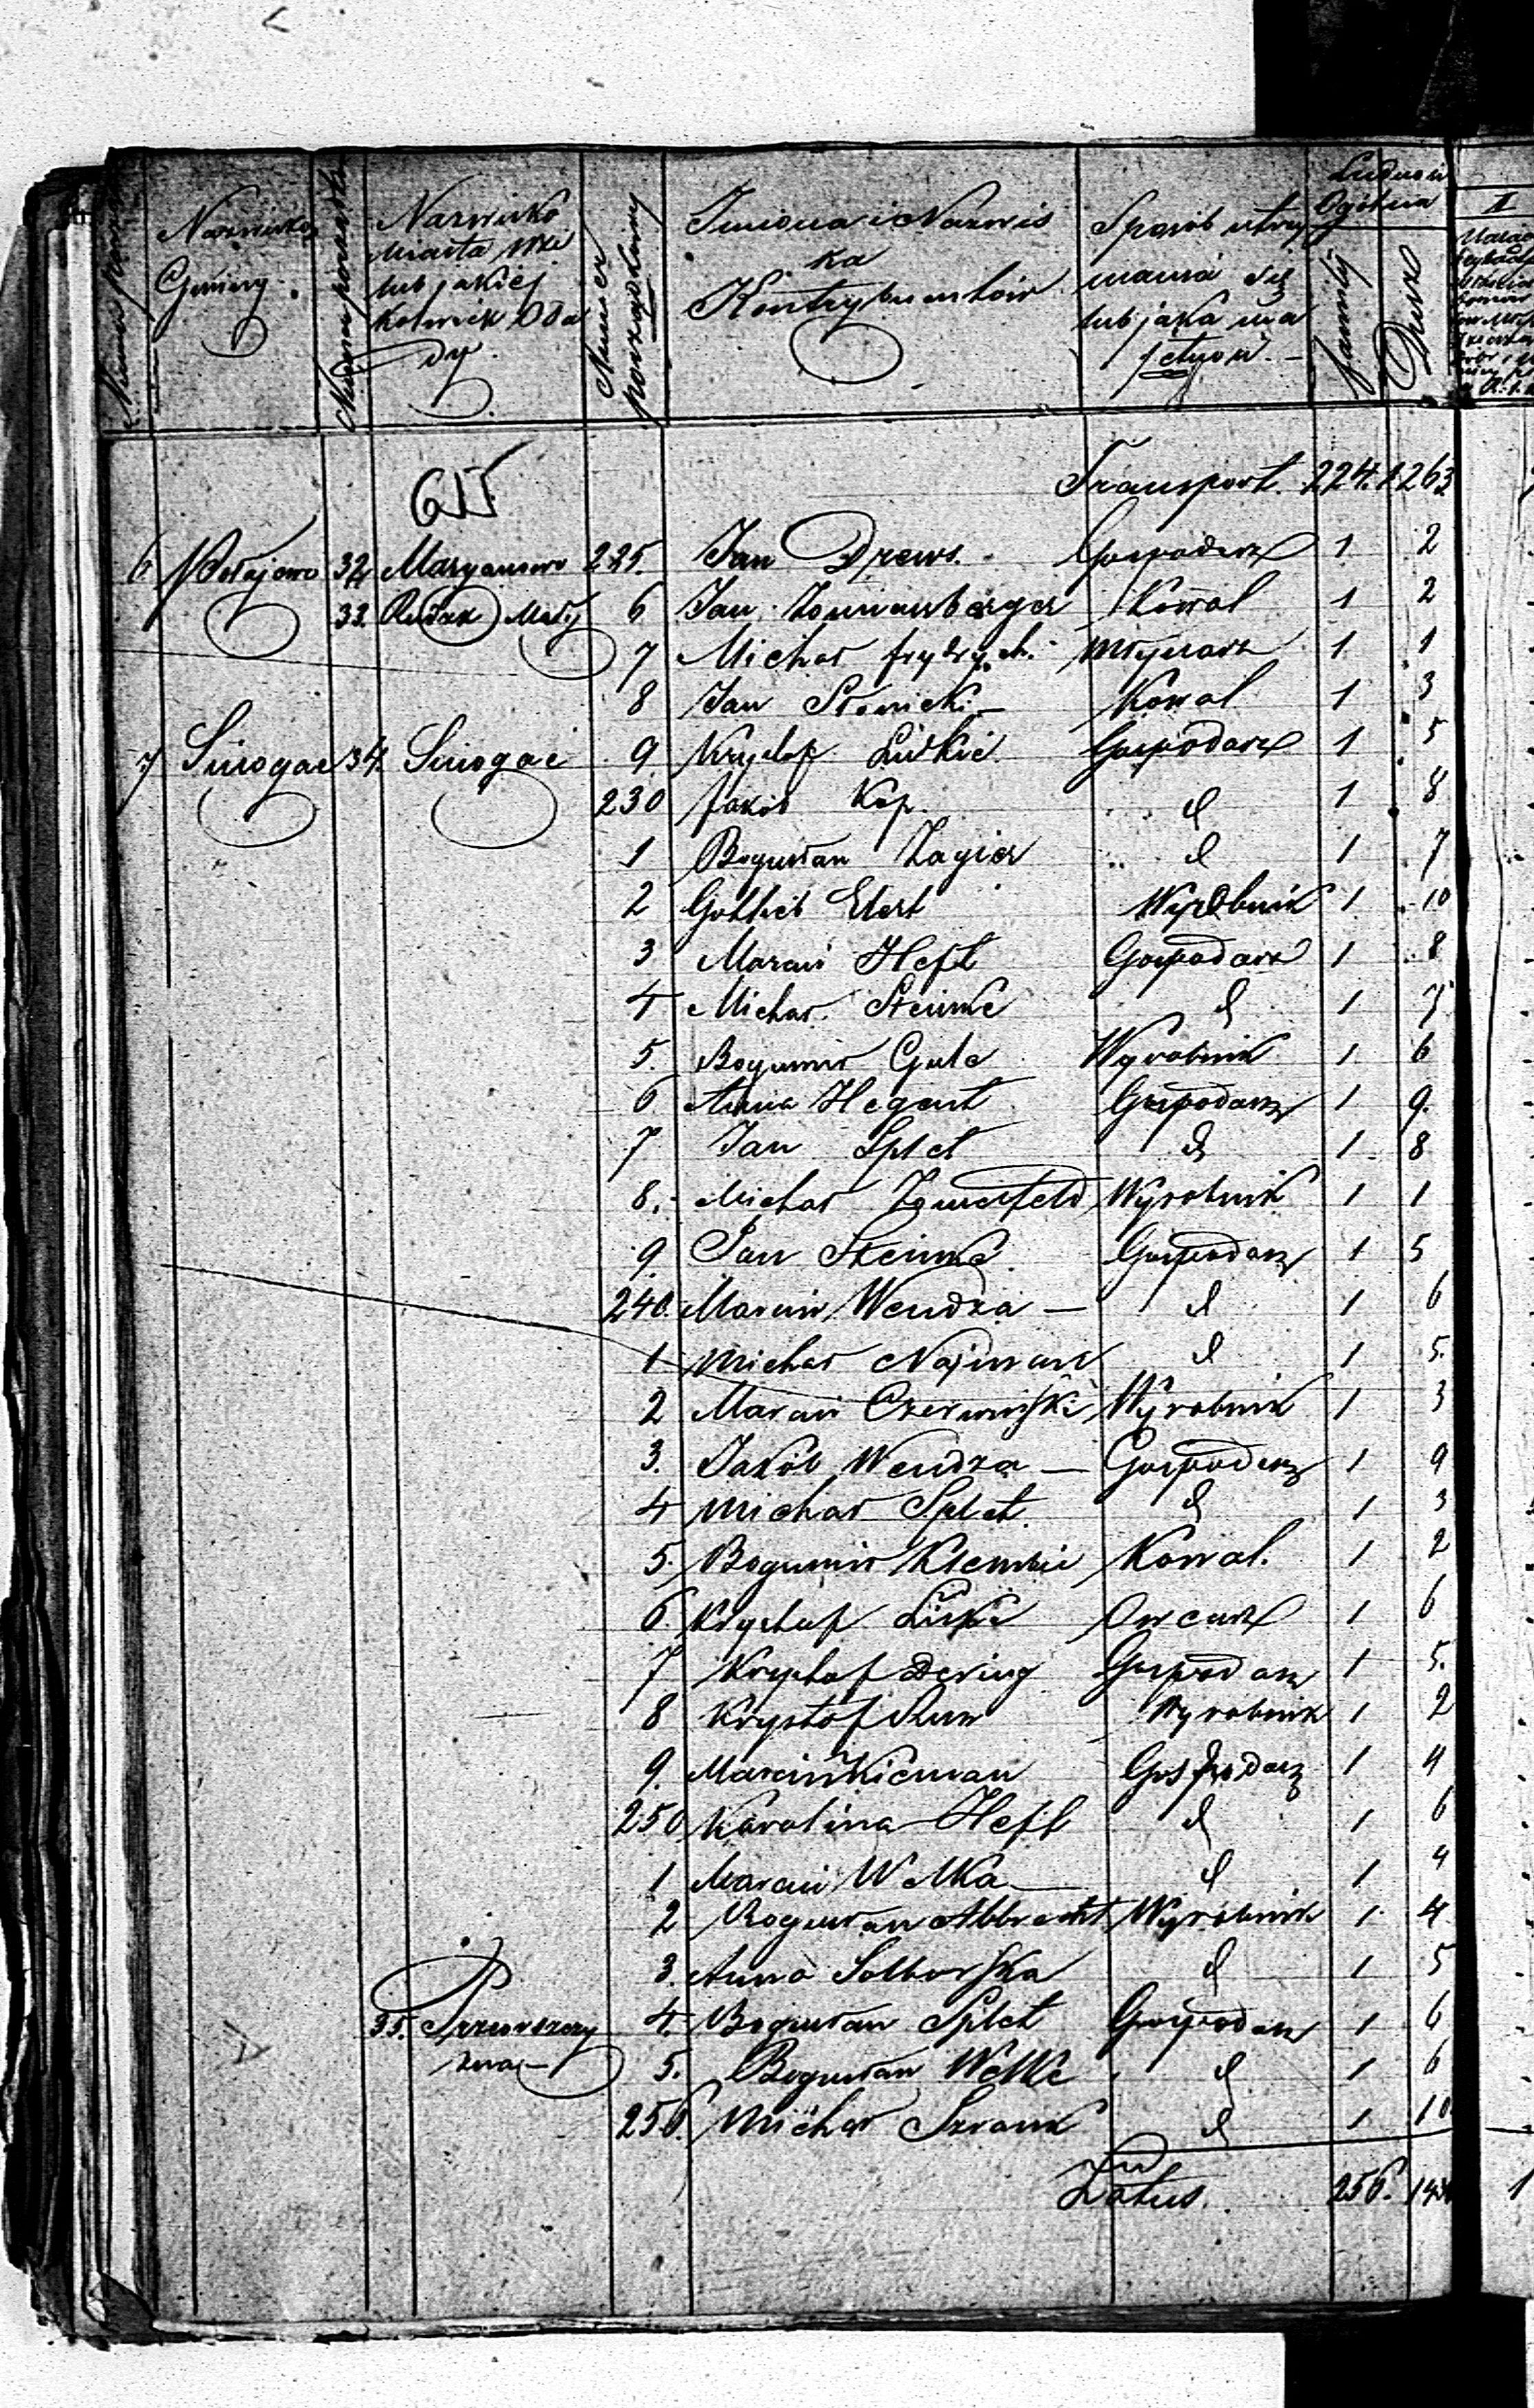 Nazwisko Gminy
Nazwisko Miasta Wsi lub jakiej kolwiek Osady
Numer porządkowy
Imiona i Nazwiska Kontrybuentów
Sposób utrzymania się lub jaka ma
Ludność Ogólna
Familij
Dusz
II
615
Transport. 224. 1263
6 32 Maryanowo 225. Jan Drews. Gospodarz 1 2
33. Rudzk Mały 6 Jan Kowal 1 2
7 Michał frydrych. Młynarz 1 1
8 Jan Słowicki Kowal 1 3
7 34. 9 Krysztof Lidkie Gospodarz 1 5
230 Jakób Kop. d 1 8
1 Bogusław Zagier d 1 7
2 Gottlieb Elert Wyrobnik 1 10
3 Marcin Heft Gospodarz 1 8
4 Michał Steinke d 1 7
5. Bogumił Gule Wyrobnik 1 6
6 Anna Hegent Gospodarz 1 9.
7 Jan Splet d 1 8
8. Michał Zomerfeld Wyrobnik 1 1
9. Jan Steinke Gospodarz 1 5
240. Marcin Wendza d 1 6
1 Michał Najman d 1 5.
2 Marcin Czerwiński Wyrobnik 1 3
3. Jakób Wendza Gospodarz 1 9
4 Michał Splet d 1 3
5. Bogumił Klembie Kowal. 1 2
6. Krysztof Owcarz 1 6
7 Krysztof Dering Gospodarz 1 5.
8 Krysztof Wyrobnik 1 2
9. Marcin Kieman Gospodarz 1 4
250 Karolina Heft d 1 6
1 Marcin Welka d 1 4
2 Bogusław Albrecht Wyrobnik 1 4
3. Anna Solborska d 1 5
35. 4. Bogusław Splet Gospodarz 1 6
5. Bogusław Welke d 1 6
256. Michał Szrank d 1 10
Latus. 256.